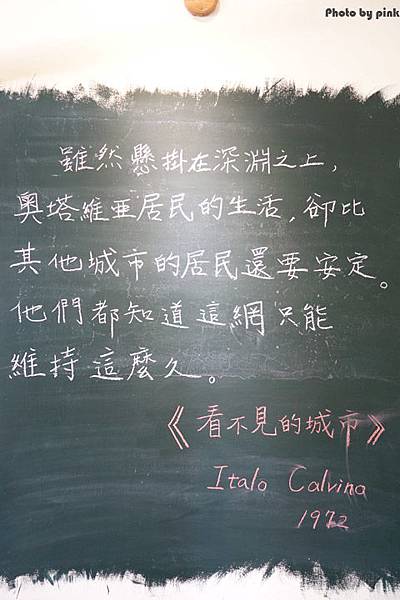 Photo by pink
雖然懸掛在深淵之上，
奧塔維亞居民的生活，卻比
其他城市的居民還要安定。
他們都知道這網只能
維持這麼久。
《看不見的城市》
Italo Calvina
1972